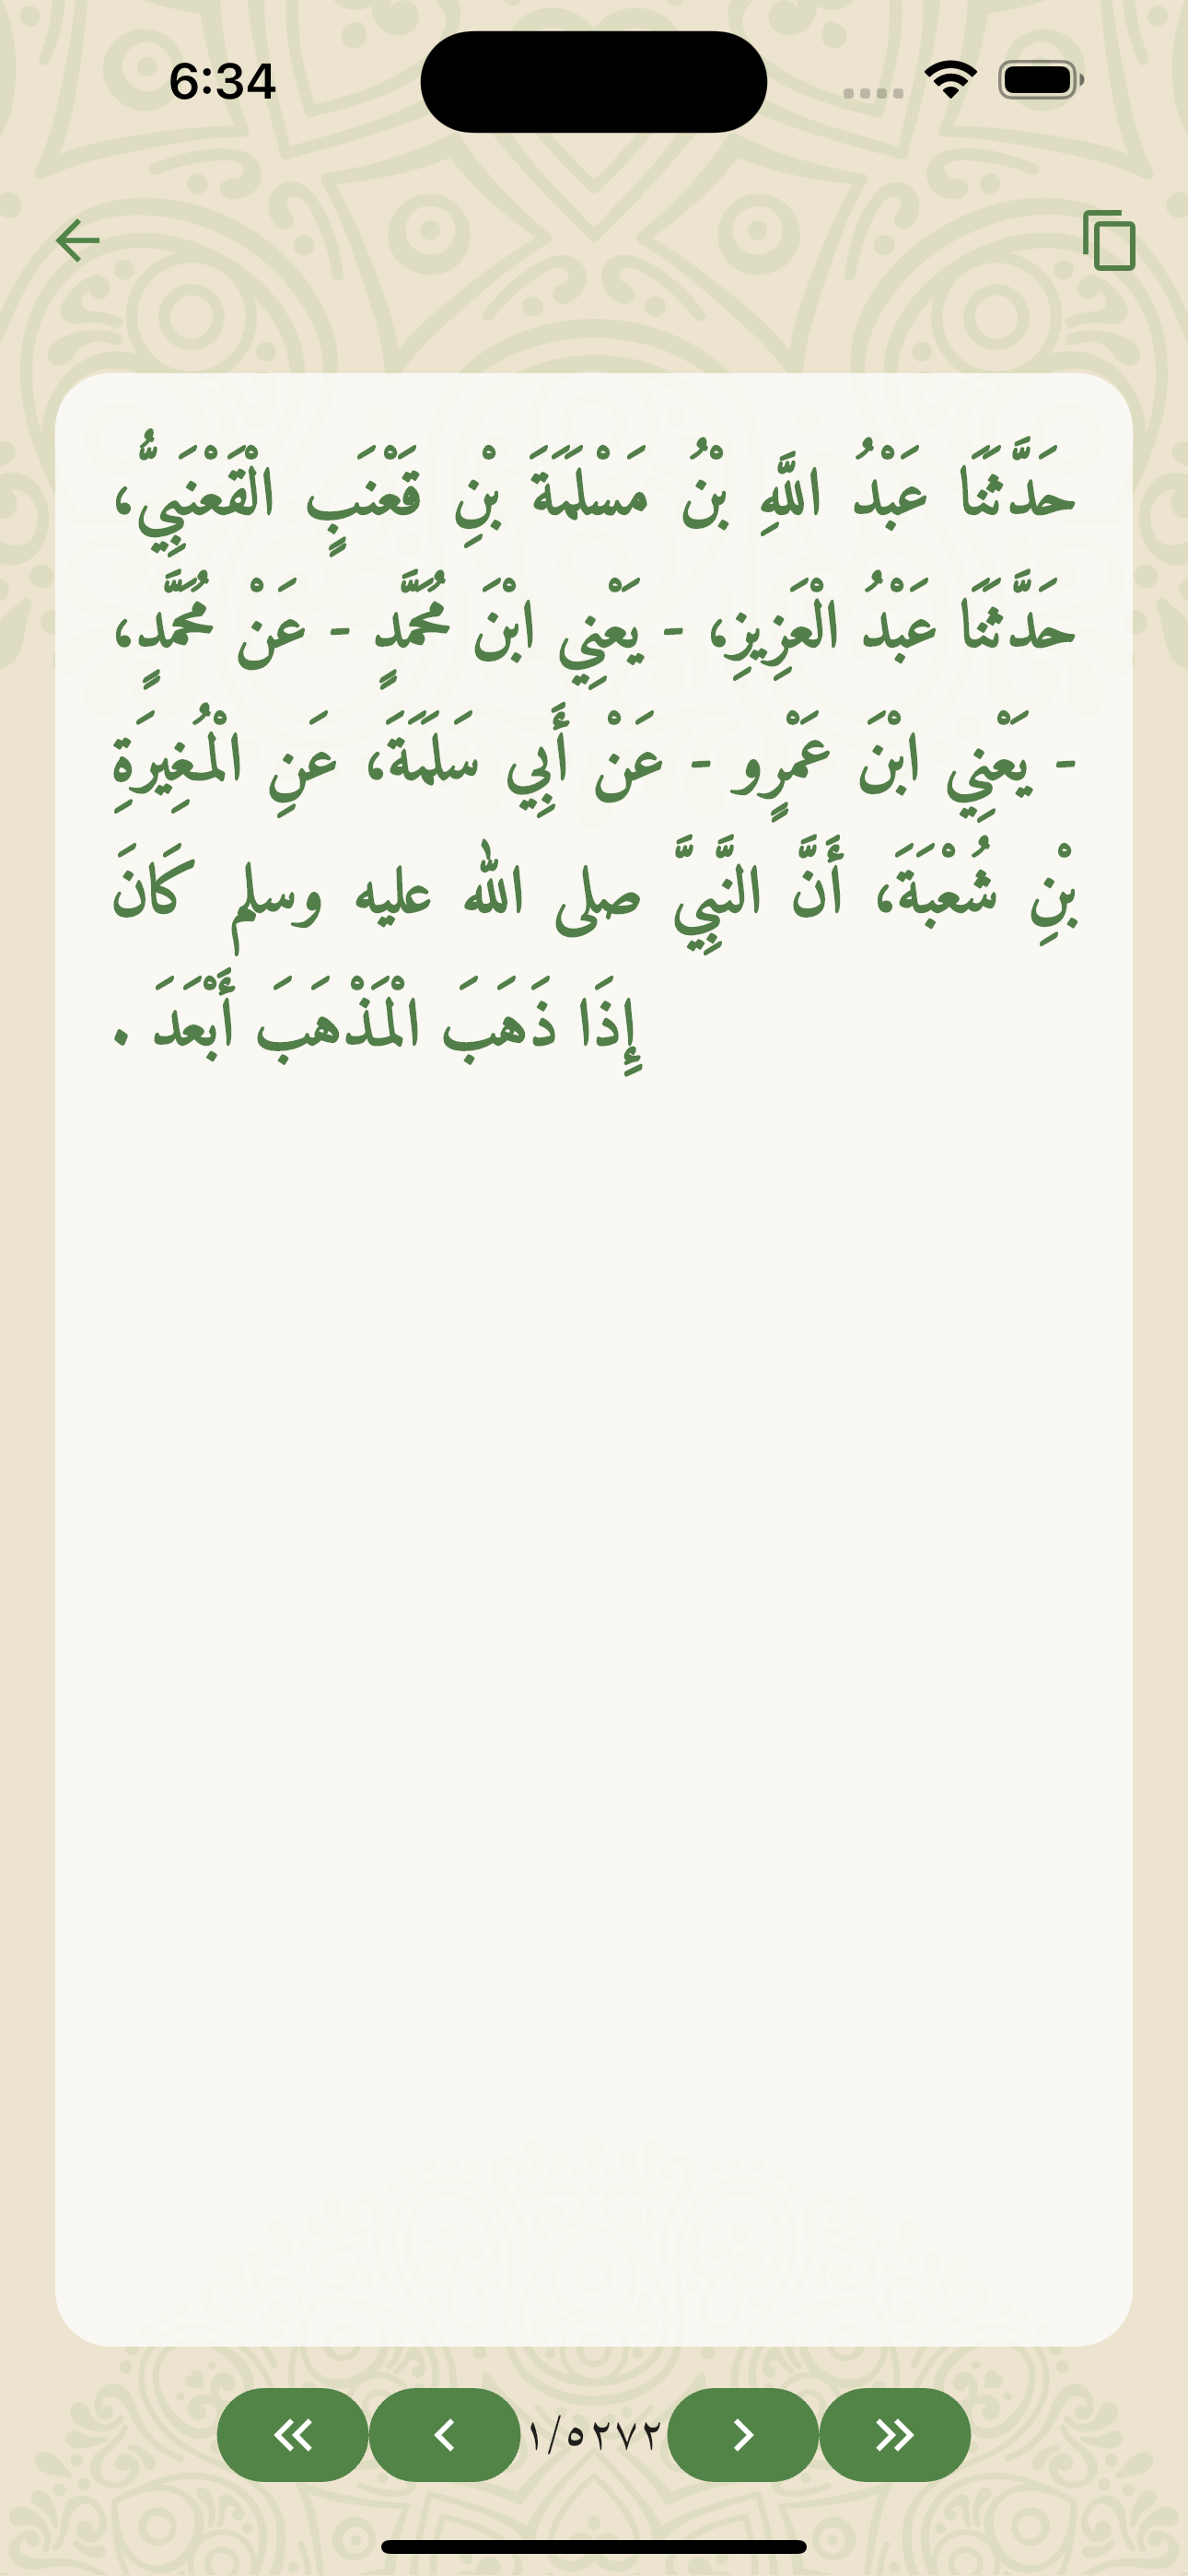 6:34
حَدَّثَنَا عَبْدُ اللَّهِ بْنُ مَسْلَمَةَ بْنِ قَعْنَبٍ الْقَعْنَبِيُّ،
حَدَّثَنَا عَبْدُ الْعَزِيزِ، - يَعْنِي ابْنَ مُحَمَّدٍ - عَنْ مُحَمَّدٍ،
- يَعْنِي ابْنَ عَمْرٍو - عَنْ أَبِي سَلَمَةَ، عَنِ الْمُغِيرَةِ
بْنِ شُعْبَةَ، أَنَّ النَّبِيَّ صلى الله عليه وسلم كَانَ
إِذَا ذَهَبَ الْمَذْهَبَ أَبْعَدَ .
١/٥٢٧٢